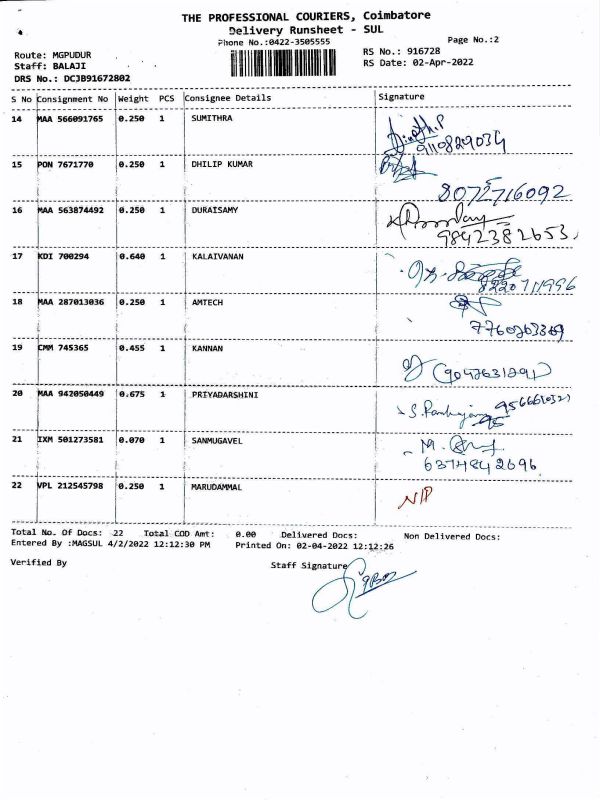 THE PROFESSIONAL COURIERS, Coimbatore
Delivery Runsheet - SUL
Phone No.:0422-3505555
Page No.:2
Route: MGPUDUR
RS No.: 916728
Staff: BALAJI
RS Date: 02-Apr-2022
DRS No.: DCJB91672802
S No Consignment No Weight PCS Consignee Details Signature
14 MAA 566091765 0.250 1 SUMITHRA
9110829034
15 PON 7671770 0.250 1 DHILIP KUMAR
8072716092
16 MAA 563874492 0.250 1 DURAISAMY
9842382653
17 KDI 700294 0.640 1 KALAIVANAN
8220711996
18 MAA 287013036 0.250 1 AMTECH
19 CMM 745365 0.455 1 KANNAN
20 MAA 942050449 0.675 1 PRIYADARSHINI
21 IXM 501273581 0.070 1 SANMUGAVEL
22 VPL 212545798 0.250 1 MARUDAMMAL N/P
Total No. Of Docs: 22 Total COD Amt: 0.00 Delivered Docs: Non Delivered Docs:
Entered By :MAGSUL 4/2/2022 12:12:30 PM Printed On: 02-04-2022 12:12:26
Verified By Staff Signature